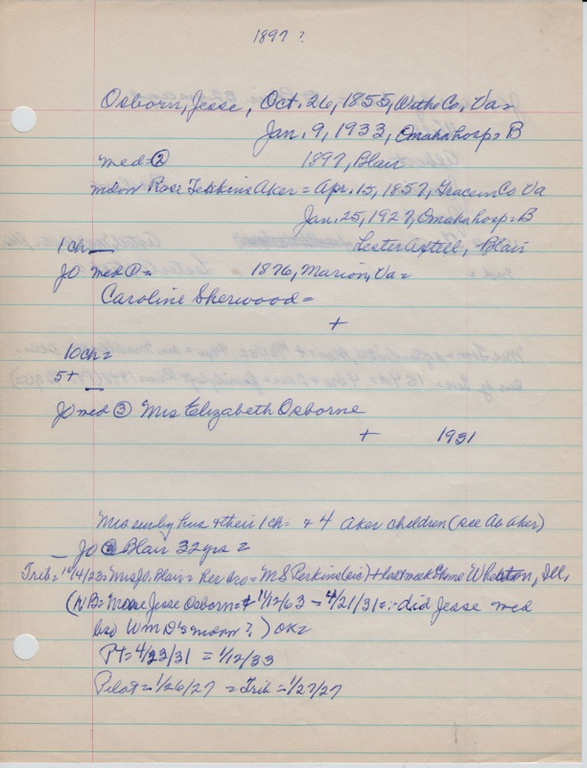 1897?
Osborn, Jesse, Oct. 26, 1855, Wythe Co, Va =
Jan. 9, 1933, Omaha hosp = B
med = ② 1897, Blair
mdow Rose Aker = Apr. 15, 1857, Co Va
Jan. 25, 1927, Omaha hosp = B
Lester Axtell, Blair
1 ch =
JO med ① = 1876, Marion, Va =
Caroline Sherwood =
+
10 ch =
5 +
JO med ③ Mrs Elizabeth Osborne
+ 1931
Mrs sur by hus & their 1 ch = & 4 Aker children (see Ab Aker)
JO @ Blair 32 yrs =
Trib = 1/4/23 = Mrs JO, Blair = Rev bro = M S Perkins (sic) + last week @ home Wheaton, Ill,
(NB = Jesse Osborn = 1/12/63 = 4/21/31 = :- did Jesse med
bro Wm D's mdow?) OK =
PT = 4/23/31 = 1/12/33
Pilot = 1/26/27 = Trib = 1/27/27